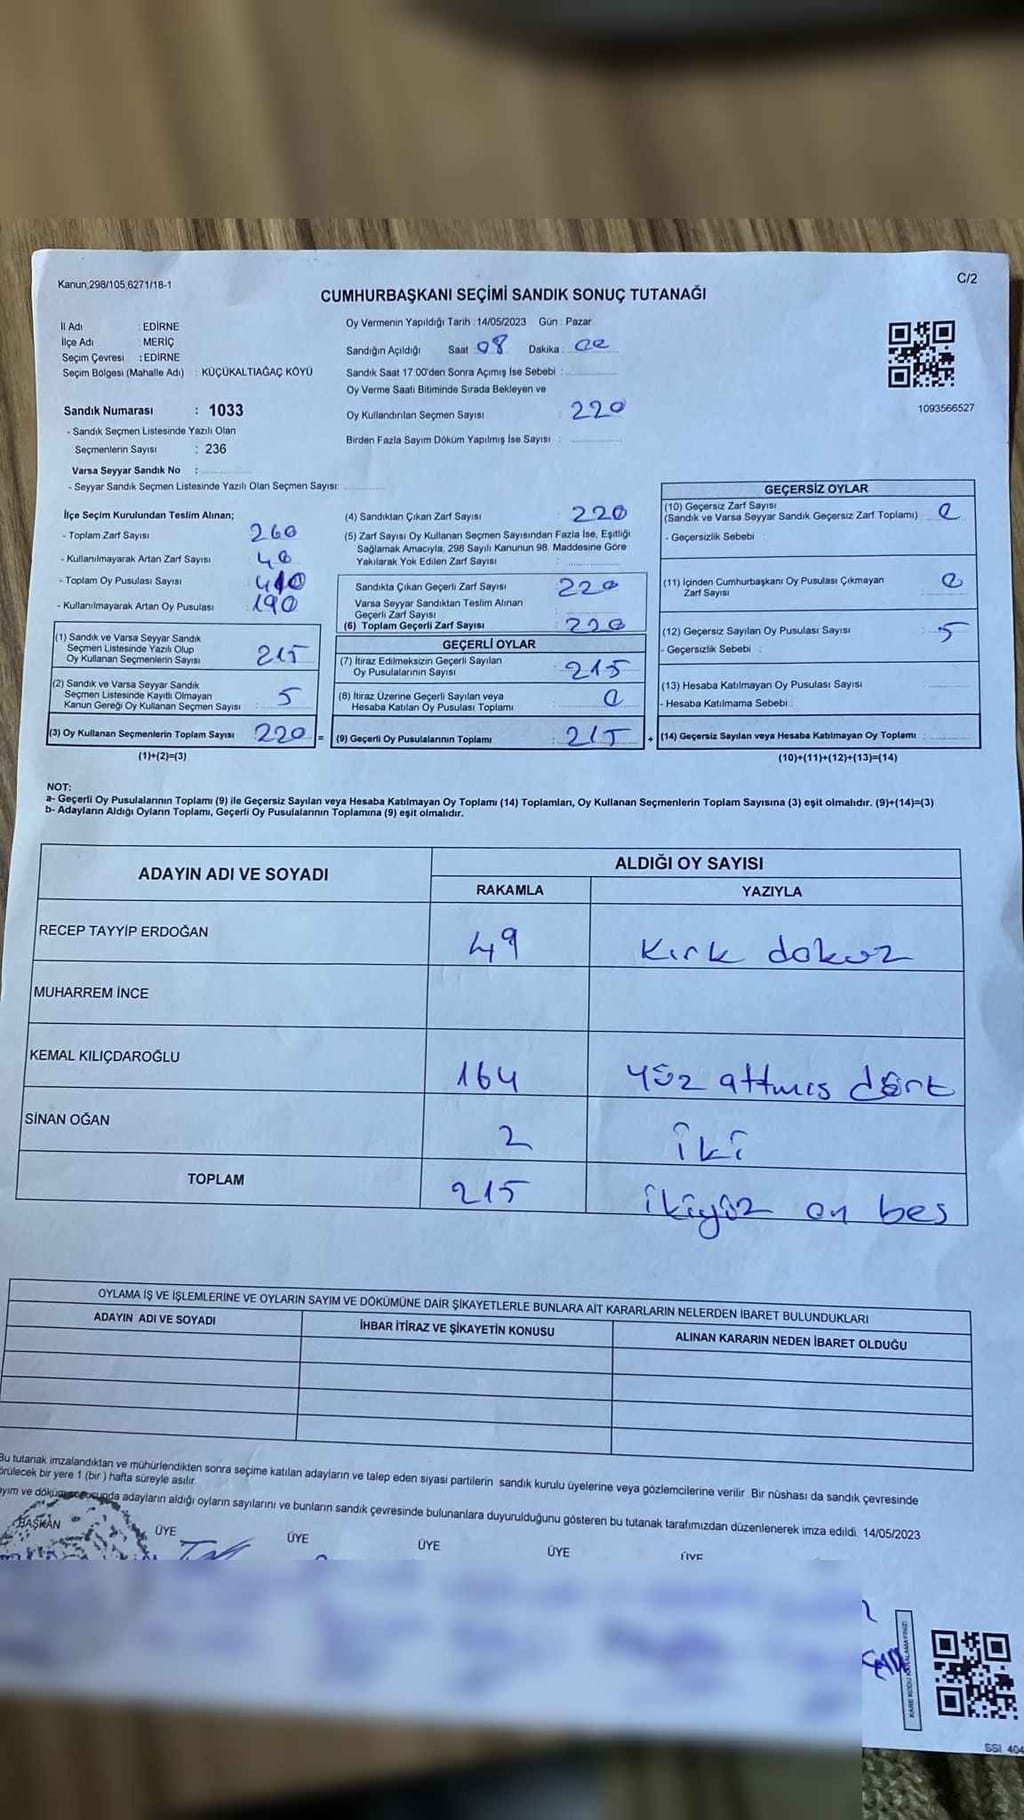 Kanun,298/105,6271/18-1
C/2
CUMHURBAŞKANI SEÇİMİ SANDIK SONUÇ TUTANAĞI
İl Adı : EDİRNE
İlçe Adı : MERİÇ
Seçim Çevresi : EDİRNE
Seçim Bölgesi (Mahalle Adı) : KÜÇÜKALTIAĞAÇ KÖYÜ
Sandık Numarası : 1033
- Sandık Seçmen Listesinde Yazılı Olan
Seçmenlerin Sayısı : 236
Varsa Seyyar Sandık No :
- Seyyar Sandık Seçmen Listesinde Yazılı Olan Seçmen Sayısı:
Oy Vermenin Yapıldığı Tarih : 14/05/2023 Gün : Pazar
Sandığın Açıldığı Saat 08 Dakika : 00
Sandık Saat 17.00'den Sonra Açımış İse Sebebi :
Oy Verme Saati Bitiminde Sırada Bekleyen ve
Oy Kullandırılan Seçmen Sayısı : 220
Birden Fazla Sayım Döküm Yapılmış İse Sayısı :
1093566527
İlçe Seçim Kurulundan Teslim Alınan;
- Toplam Zarf Sayısı 260
- Kullanılmayarak Artan Zarf Sayısı : 40
- Toplam Oy Pusulası Sayısı : 410
- Kullanılmayarak Artan Oy Pusulası : 190
(1) Sandık ve Varsa Seyyar Sandık
Seçmen Listesinde Yazılı Olup
Oy Kullanan Seçmenlerin Sayısı : 215
(2) Sandık ve Varsa Seyyar Sandık
Seçmen Listesinde Kayıtlı Olmayan
Kanun Gereği Oy Kullanan Seçmen Sayısı : 5
(3) Oy Kullanan Seçmenlerin Toplam Sayısı 220 =
(1)+(2)=(3)
(4) Sandıktan Çıkan Zarf Sayısı : 220
(5) Zarf Sayısı Oy Kullanan Seçmen Sayısından Fazla İse, Eşitliği
Sağlamak Amacıyla, 298 Sayılı Kanunun 98. Maddesine Göre
Yakılarak Yok Edilen Zarf Sayısı :
Sandıkta Çıkan Geçerli Zarf Sayısı : 220
Varsa Seyyar Sandıktan Teslim Alınan
Geçerli Zarf Sayısı :
(6) Toplam Geçerli Zarf Sayısı : 220
GEÇERLİ OYLAR
(7) İtiraz Edilmeksizin Geçerli Sayılan
Oy Pusulalarının Sayısı : 215
(8) İtiraz Üzerine Geçerli Sayılan veya
Hesaba Katılan Oy Pusulası Toplamı : 0
(9) Geçerli Oy Pusulalarının Toplamı : 215 +
GEÇERSİZ OYLAR
(10) Geçersiz Zarf Sayısı
(Sandık ve Varsa Seyyar Sandık Geçersiz Zarf Toplamı) : 0
- Geçersizlik Sebebi :
(11) İçinden Cumhurbaşkanı Oy Pusulası Çıkmayan
Zarf Sayısı : 0
(12) Geçersiz Sayılan Oy Pusulası Sayısı : 5
- Geçersizlik Sebebi :
(13) Hesaba Katılmayan Oy Pusulası Sayısı :
- Hesaba Katılmama Sebebi :
(14) Geçersiz Sayılan veya Hesaba Katılmayan Oy Toplamı :
(10)+(11)+(12)+(13)=(14)
NOT:
a- Geçerli Oy Pusulalarının Toplamı (9) ile Geçersiz Sayılan veya Hesaba Katılmayan Oy Toplamı (14) Toplamları, Oy Kullanan Seçmenlerin Toplam Sayısına (3) eşit olmalıdır. (9)+(14)=(3)
b- Adayların Aldığı Oyların Toplamı, Geçerli Oy Pusulalarının Toplamına (9) eşit olmalıdır.
ADAYIN ADI VE SOYADI
ALDIĞI OY SAYISI
RAKAMLA YAZIYLA
RECEP TAYYİP ERDOĞAN 49 Kırk dokuz
MUHARREM İNCE
KEMAL KILIÇDAROĞLU 164 yüz altmış dört
SİNAN OĞAN 2 iki
TOPLAM 215 ikiyüz on beş
OYLAMA İŞ VE İŞLEMLERİNE VE OYLARIN SAYIM VE DÖKÜMÜNE DAİR ŞİKAYETLERLE BUNLARA AİT KARARLARIN NELERDEN İBARET BULUNDUKLARI
ADAYIN ADI VE SOYADI İHBAR İTİRAZ VE ŞİKAYETİN KONUSU ALINAN KARARIN NEDEN İBARET OLDUĞU
Bu tutanak imzalandıktan ve mühürlendikten sonra seçime katılan adayların ve talep eden siyasi partilerin sandık kurulu üyelerine veya gözlemcilerine verilir Bir nüshası da sandık çevresinde
örülecek bir yere 1 (bir) hafta süreyle asılır.
ayım ve döküm sonucunda adayların aldığı oyların sayılarını ve bunların sandık çevresinde bulunanlara duyurulduğunu gösteren bu tutanak tarafımızdan düzenlenerek imza edildi. 14/05/2023
BAŞKAN ÜYE ÜYE ÜYE ÜYE ÜYE
SSI 404